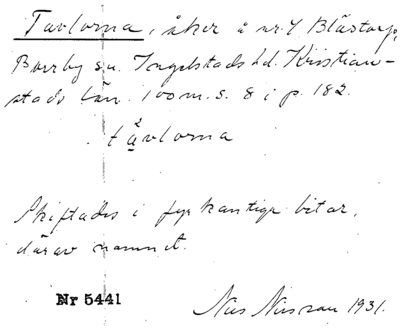 Tavlorna, åker å nr. 4 Blästorp,
Borrby sn. Ingelstads hd. Kristian-
stads län. 100 m. s. 8 i p. 182.
tåvlorna
2
Skiftades i fyrkantiga bitar,
därav namnet.
Nr 5441
Nils Nilsson 1931.